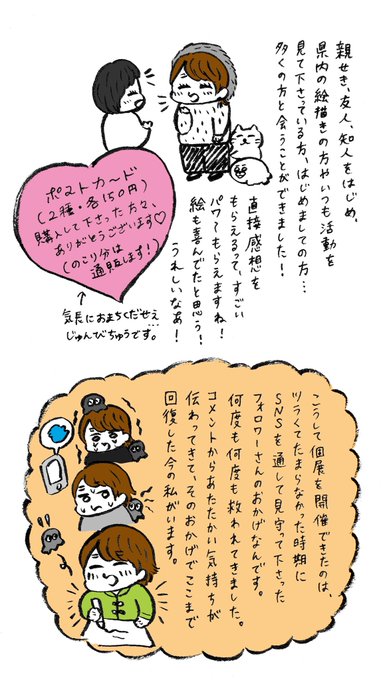 親せき、友人、知人をはじめ、
県内の絵描きの方やいつも活動を
見て下さっている方、はじめましての方…
多くの方と会うことができました！
直接感想を
もらえるって、すごい
パワーもらえますね！
絵も喜んでたと思う！
うれしいなあ！
ポストカード
(2種・各150円)
購入して下さった方々、
ありがとうございます♡
(のこり分は
通販します！)
↑
気長におまちくだせえ…
じゅんびちゅうです。
こうして個展を開催できたのは、
ツラくてたまらなかった時期に
SNSを通して見守って下さった
フォロワーさんのおかげなんです。
何度も何度も救われてきました。
コメントからあたたかい気持ちが
伝わってきて、そのおかげでここまで
回復した今の私がいます。